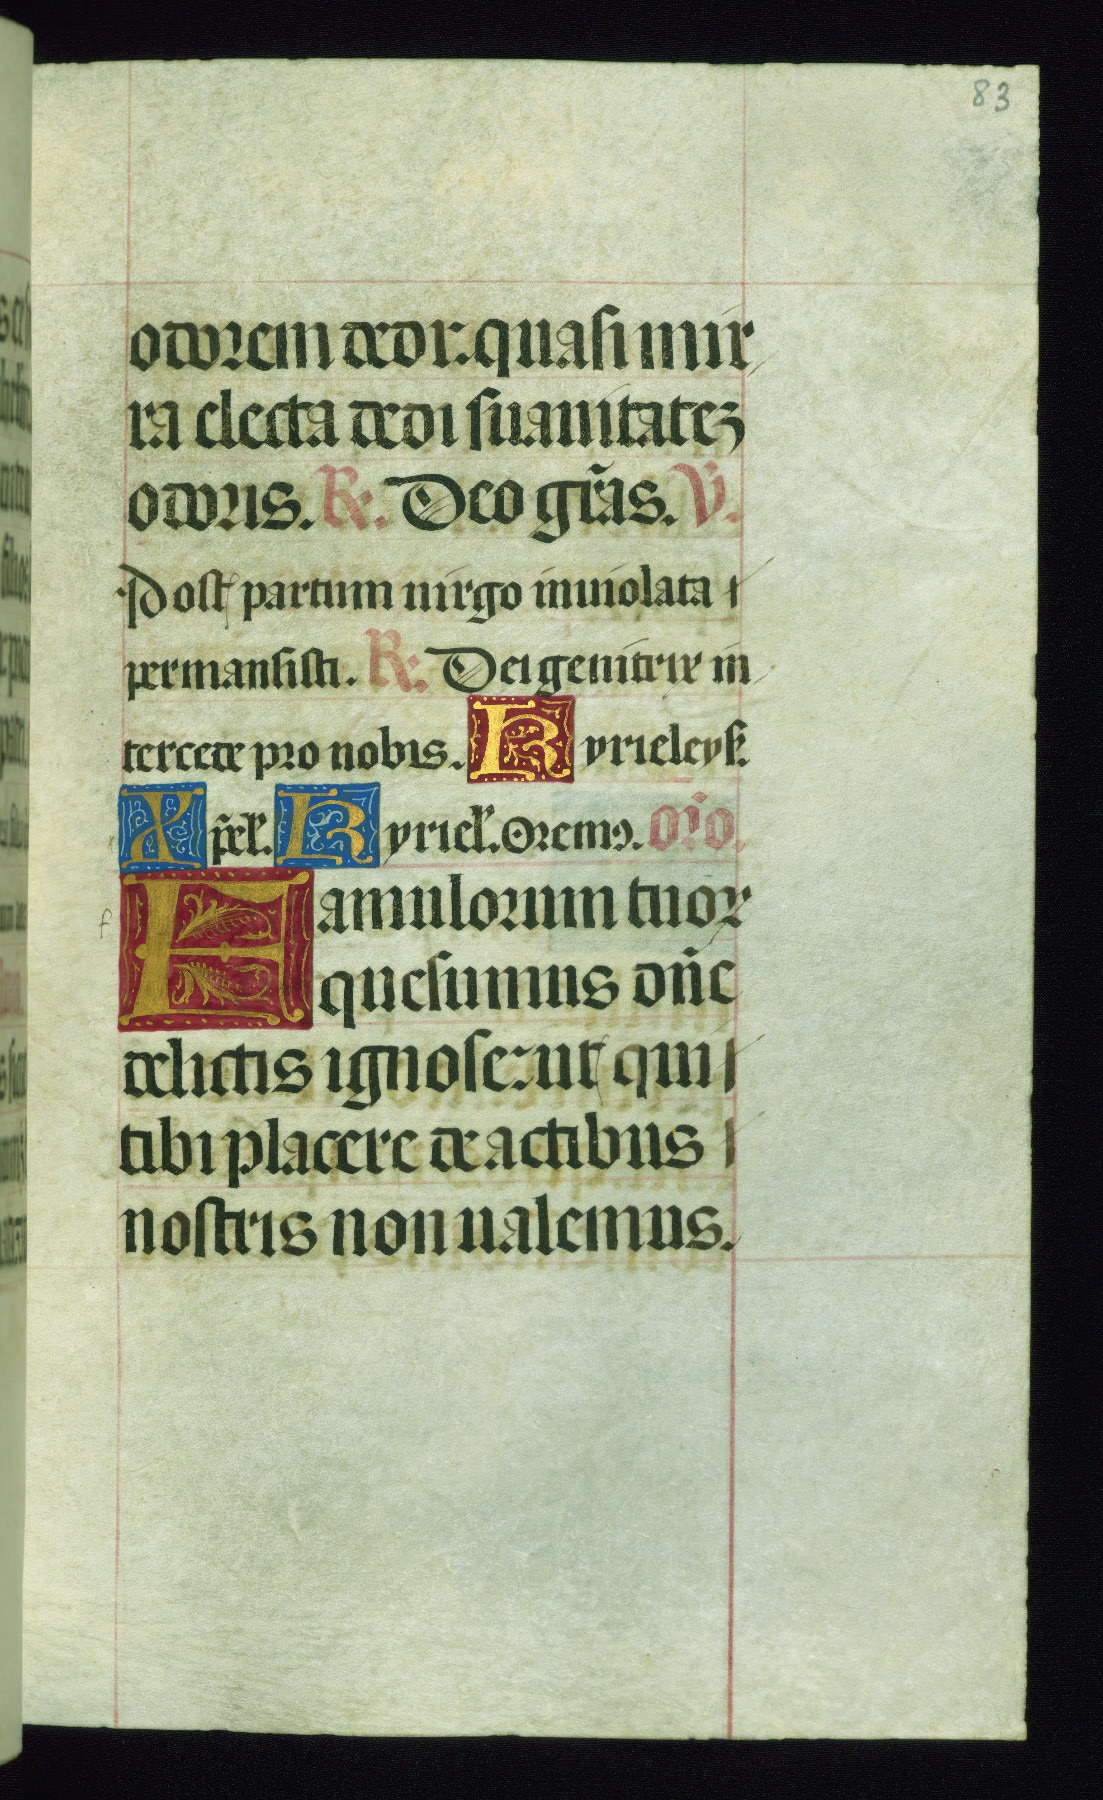 83
odorem dedi. quasi mir
ra electa dedi suauitatez
odoris. R. Deo gr̃as. V.
Post partum uirgo inuiolata
permansisti. R. Dei genitrix in
tercede pro nobis. Kyrieleyſ.
Xp̃el̕. Kyriel̕. Oremꝰ. or̃o.
Famulorum tuoꝝ
quesumus dn̄e
delictis ignosce: ut qui
tibi placere de actibus
nostris non ualemus.